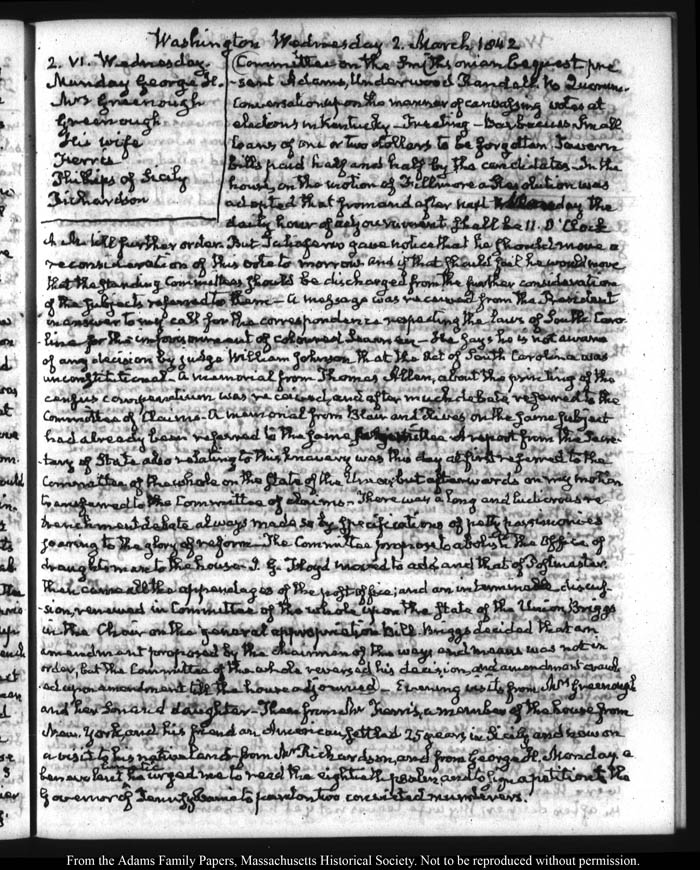 Washington Wednesday 2. March 1842
2. VI. Wednesday.
Munday George H.
Mrs Greenough
Greenough
His wife
Ferris
Phillips of Sicily
Richardson
Committee on the Smithsonian bequest pre
-sent Adams, Underwood Randall. No Quorum.
Conversation upon the manner of canvassing votes at
elections in Kentucky – Treating – Barbecues small
loans of one or two dollars to be forgotten. Tavern
bills paid half and half by the candidates. In the
house, on the motion of Fillmore a Resolution was
adopted that from and after next day the
daily hour of adjournment shall be 11. O'Clock
till further order. But Taliaferro gave notice that he should move a
reconsideration of this vote to morrow and if that should fail he would move
that the standing Committees should be discharged from the further consideration
of the subjects referred to them – A message was received from the President
in answer to my call for the correspondence respecting the laws of South Caro
-lina for the imprisonment of coloured seamen – He says he is not aware
of any decision by Judge William Johnson that the Act of South Carolina was
unconstitutional – A memorial from Thomas Allen, about the printing of the
census compendium was received, and after much debate referred to the
Committee of Claims. A memorial from Blair and Rives on the same subject
had already been referred to the same Committee A report from the Secre-
-tary of State also relating to this knavery was this day at first referred to the
Committee of the whole on the State of the Union; but afterwards on my motion
transferred to the Committee of claims – There was a long and ludicrous re
trenchment debate always made so by specifications of petty parsimonies
soaring to the glory of reform. The Committee propose to abolish the Office of
draughtsman to the house. J. G. Floyd moved to add, and that of Postmaster.
Then came all the appendages of the post office; and an interminable discus
-sion, renewed in Committee of the whole upon the State of the Union, Briggs
in the Chair on the general appropriation bill. Briggs decided that an
amendment proposed by the chairman of the ways and means was not in
order, but the Committee of the whole reversed his decision, and amendment crowd
-ed upon amendment till the house adjourned – Evening visits from Mrs Greenough
and her son and daughter – Then from Mr Ferris, a member of the house from
New York, and his friend an American settled 25 years in Sicily and now on
a visit to his native land – from Mr Richardson, and from George H. Munday a
benevolent he urged me to read the eighth psalm and to sign a petition to the
Governor of Pennsylvania to pardon two convicted murderers.
From the Adams Family Papers, Massachusetts Historical Society. Not to be reproduced without permission.